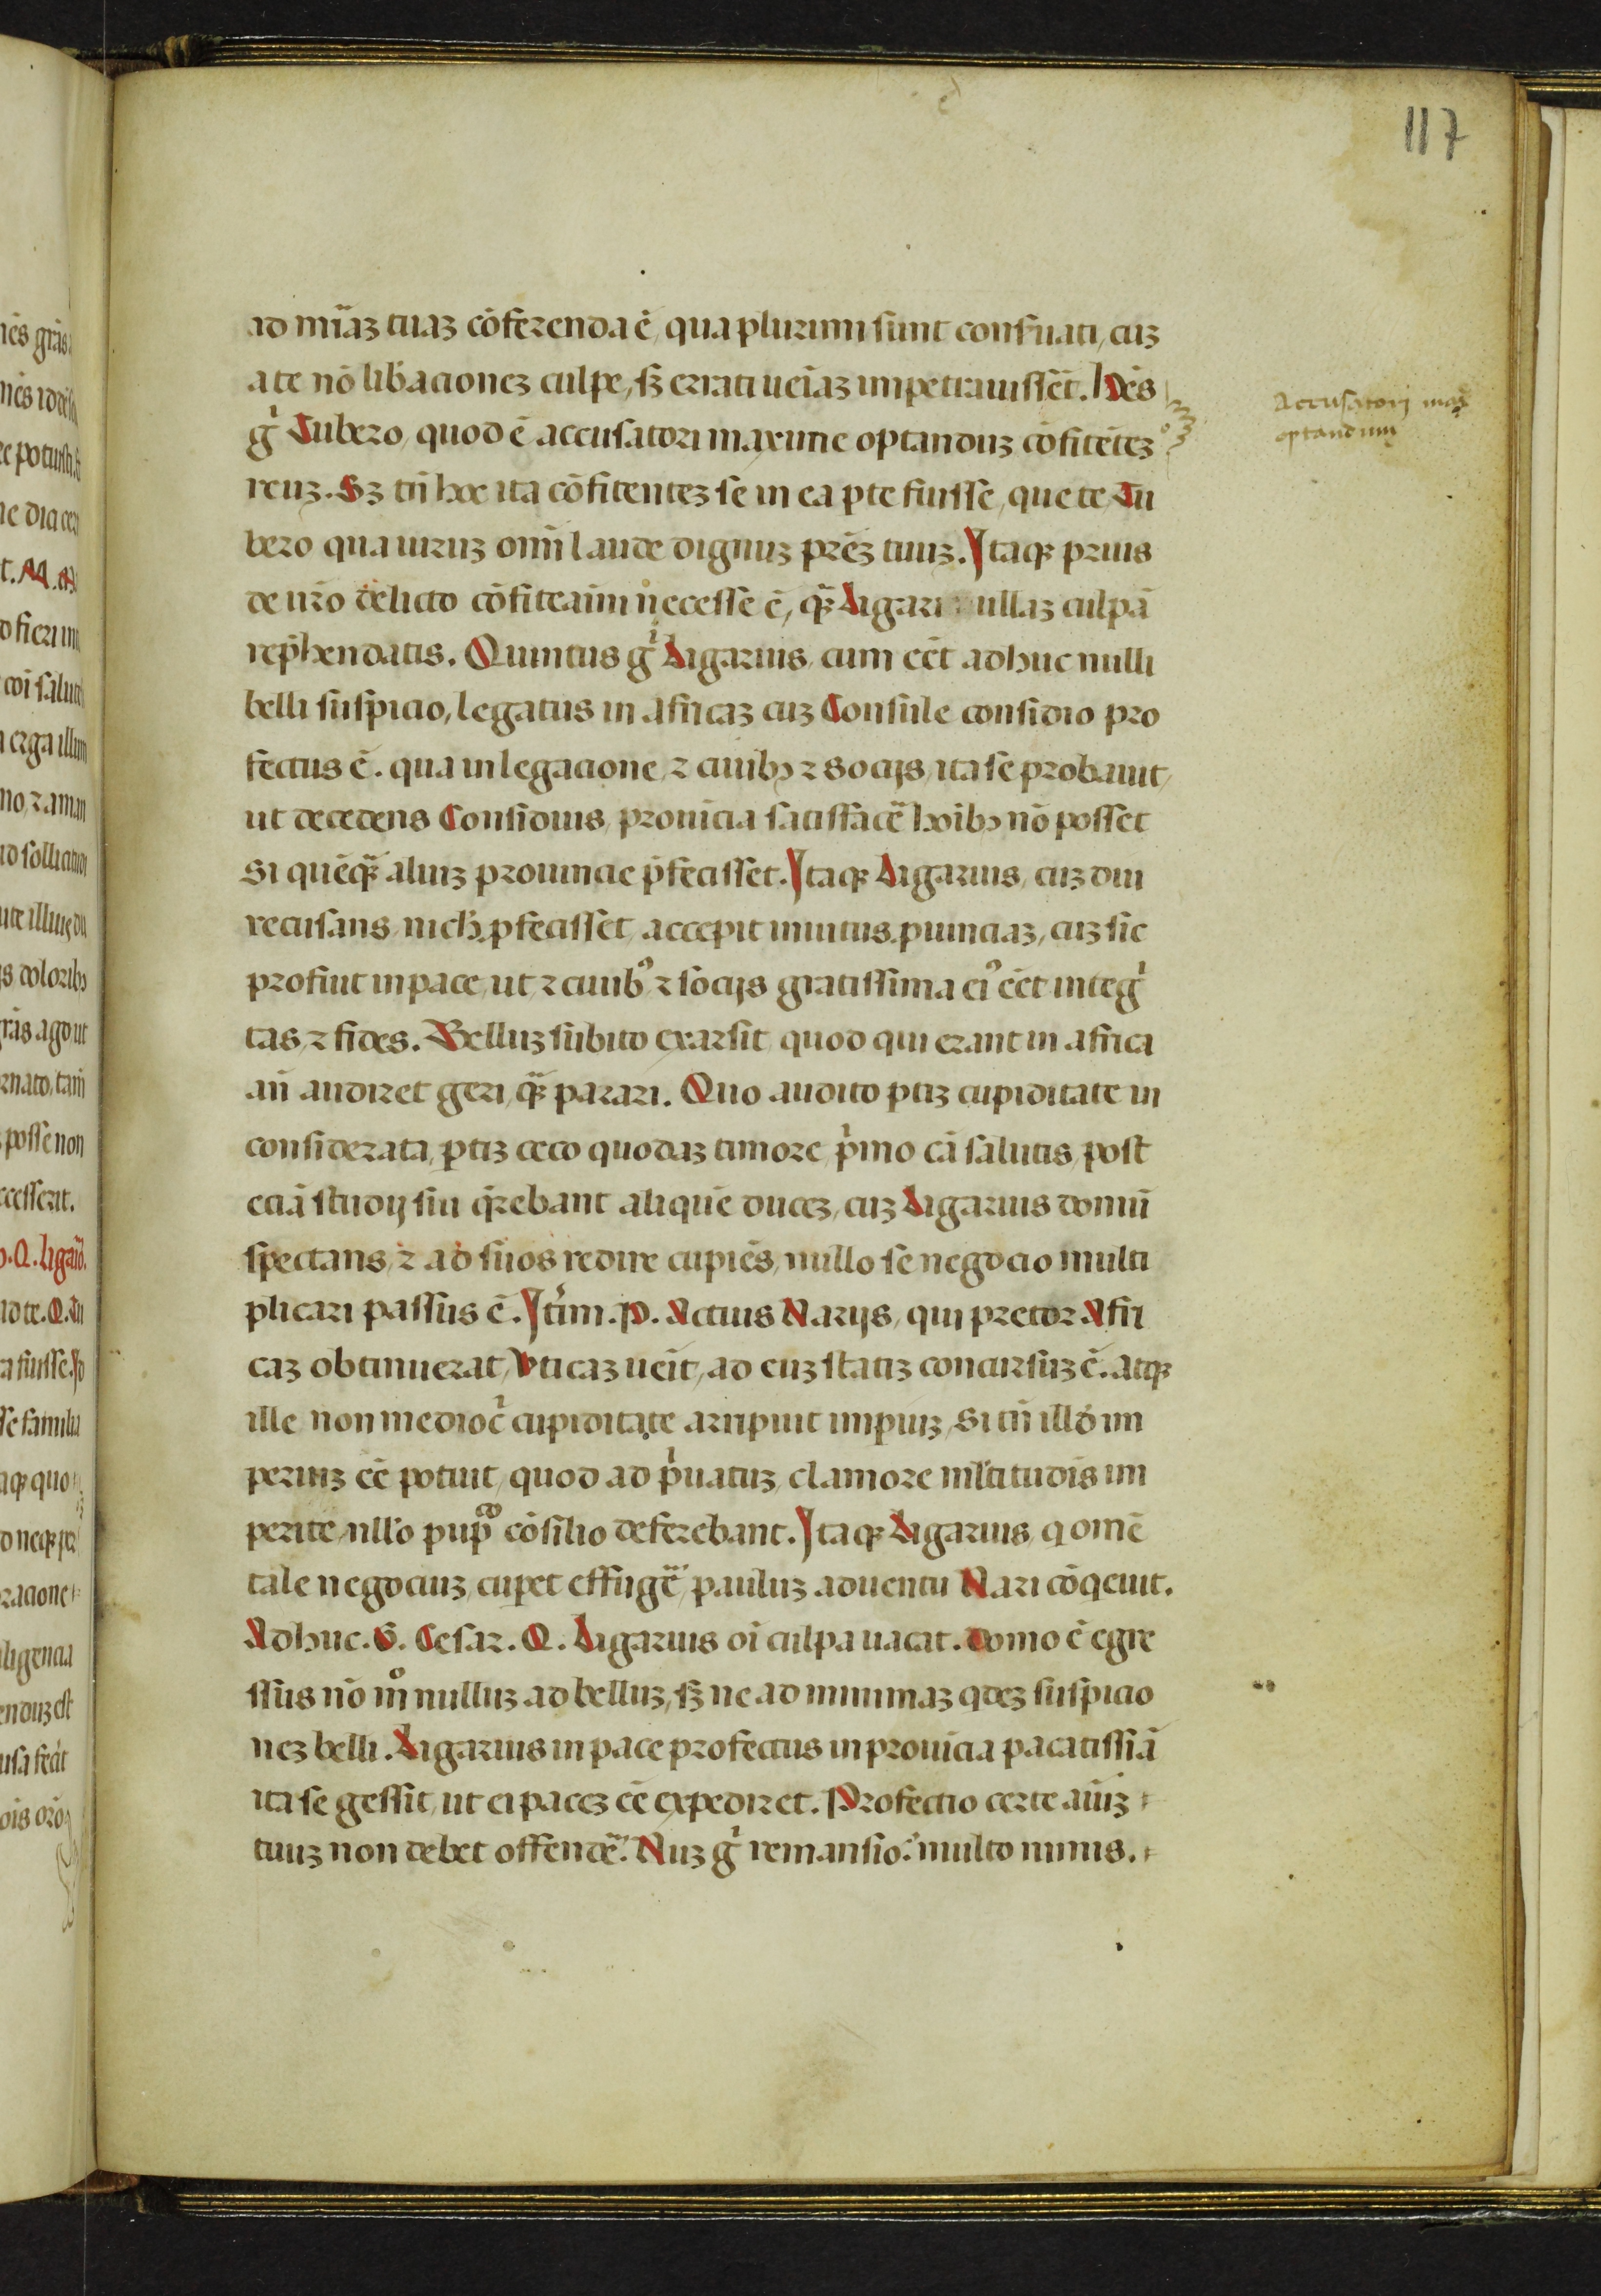 117
ad mīaꝫ tuaꝫ cōferenda ē, qua plurimi sunt conẜuati, cuꝫ
a te nō libacioneꝫ culpe, sꝫ errati ueīaꝫ impetrauissēt. Hēs
gͥ Tubero, quod ē accusatori maxime optanduꝫ cōfitēteꝫ
reuꝫ. Sꝫ tn̄ hoc ita cōfitenteꝫ se in ea ꝑte fuisse, que te Tu
bero qua uiruꝫ omī laude dignuꝫ prēꝫ tuuꝫ. Itaqꝫ prius
de ur̄o delicto cōfiteaīni necesse ē, qꝫ̄ Ligari nullaꝫ culpā
rep̄hendatis. Quintus gͥ Ligarius, cum eēt adhuc nulli
belli suspicio, legatus in affricaꝫ cuꝫ Consule considio pro
fectus ē. qua in legacione, ⁊ ciuibꝫ ⁊ socijs, ita se probauit,
ut decedens Considius, prouīcia satisfacē hoībꝫ nō posset
Si quēqꝫ̄ aliuꝫ prouincie p̄fecisset. Itaqꝫ Ligarius, cuꝫ diu
recusans, nich̄ ꝓfecisset, accepit inuitus ꝓuinciaꝫ, cuꝫ sic
profuit in pace, ut ⁊ ciuibꝰ ⁊ socijs gratissima eiꝰ eēt integͥ
tas, ⁊ fides. Belluꝫ subito exarsit, quod qui erant in affrica
an̄ audiret geri, qꝫ̄ parari. Quo audito ꝑtiꝫ cupiditate in
considerata, ꝑtiꝫ ceco quodaꝫ timore, pͥmo cā salutis, post
eciā studij sui qͥrebant aliquē duceꝫ, cuꝫ Ligarius domū
spectans, ⁊ ad suos redire cupiēs, nullo se negocio multi
plicari passus ē. Itīm. P. Actius Narijs, qui pretor Affri
caꝫ obtinuerat, Uticaꝫ ueīt, ad euꝫ statiꝫ concursuꝫ ē. atqꝫ
ille non medioc̄ cupiditate arripuit impiuꝫ, Si tn̄ illd̄ im
periuꝫ eē potuit, quod ad pͥuatuꝫ, clamore ml̄titudīs im
perite, nll̄o pupͨᵒ cōsilio deferebant. Itaqꝫ Ligarius, q omē
tale negociuꝫ, cupet effugē, pauluꝫ aduentu Nari cōqeuit.
Adhuc. G. Cesar. Q. Ligarius oī culpa uacat. Domo ē egre
ssus nō mͦ nulluꝫ ad belluꝫ, sꝫ ne ad minimaꝫ qdeꝫ suspicio
neꝫ belli. Ligarius in pace profectus in prouīcia pacatissīā
ita se gessit, ut ei paceꝫ eē expediret. Profectio certe aīuꝫ
tuuꝫ non debet offendē. Nuꝫ gͥ remansio? multo minus.
Accusatorj max
optandum